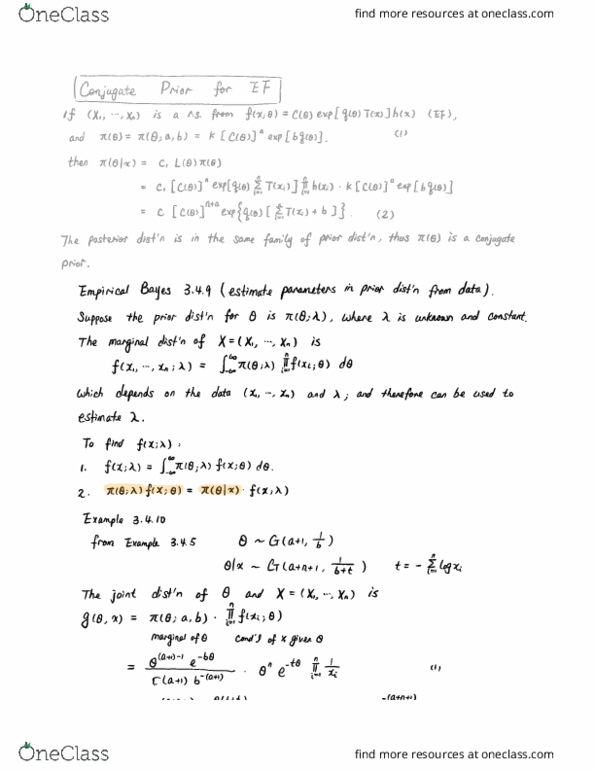 OneClass
find more resources at oneclass.com
Conjugate Prior for EF
If (X₁, ⋯, Xₙ) is a r.s. from f(x;θ) = C(θ) exp[q(θ)T(x)]h(x) (EF),
and π(θ) = π(θ; a, b) = k [C(θ)]ᵃ exp[b q(θ)]. (1)
then π(θ|x) = c₁ L(θ)π(θ)
= c₁ [C(θ)]ⁿ exp[q(θ) Σⁿᵢ₌₁ T(xᵢ)] Πⁿᵢ₌₁ h(xᵢ) · k [C(θ)]ᵃ exp[b q(θ)]
= c [C(θ)]ⁿ⁺ᵃ exp{q(θ) [Σⁿᵢ₌₁ T(xᵢ) + b]}. (2)
The posterior dist'n is in the same family of prior dist'n, thus π(θ) is a conjugate
prior.
Empirical Bayes 3.4.9 (estimate parameters in prior dist'n from data).
Suppose the prior dist'n for θ is π(θ;λ), where λ is unknown and constant.
The marginal dist'n of X = (X₁, ⋯, Xₙ) is
f(x₁, ⋯, xₙ; λ) = ∫₋∞^∞ π(θ;λ) Πⁿᵢ₌₁ f(xᵢ; θ) dθ
which depends on the data (x₁, ⋯, xₙ) and λ; and therefore can be used to
estimate λ.
To find f(x;λ):
1. f(x;λ) = ∫₋∞^∞ π(θ;λ) f(x;θ) dθ.
2. π(θ;λ) f(x;θ) = π(θ|x) · f(x;λ)
Example 3.4.10
from Example 3.4.5 θ ~ G(a+1, 1/b)
θ|x ~ G(a+n+1, 1/(b+t)) t = - Σⁿᵢ₌₁ log xᵢ
The joint dist'n of θ and X = (X₁, ⋯, Xₙ) is
g(θ, x) = π(θ; a, b) · Πⁿᵢ₌₁ f(xᵢ; θ)
marginal of θ cond'l of x given θ
= θ^((a+1)-1) e^(-bθ) / (Γ(a+1) b^(-(a+1))) · θⁿ e^(-tθ) Πⁿᵢ₌₁ 1/xᵢ (1)
OneClass
find more resources at oneclass.com